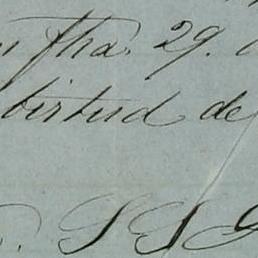 fha 29.
birtud de
S S